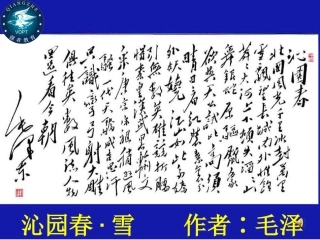 VOPT
沁園春
北国风光千里冰封万里
雪飘望长城内外惟余
莽莽大河上下顿失滔滔山
舞银蛇原驰蜡象
欲与天公试比高须
晴日看红装素裹分
外妖娆江山如此多娇
引无数英雄竞折腰
惜秦皇汉武略输文
采唐宗宋祖稍逊风
骚一代天骄成吉思汗
只识弯弓射大雕
俱往矣数风流人物
还看今朝
毛泽东
沁园春·雪 作者：毛泽